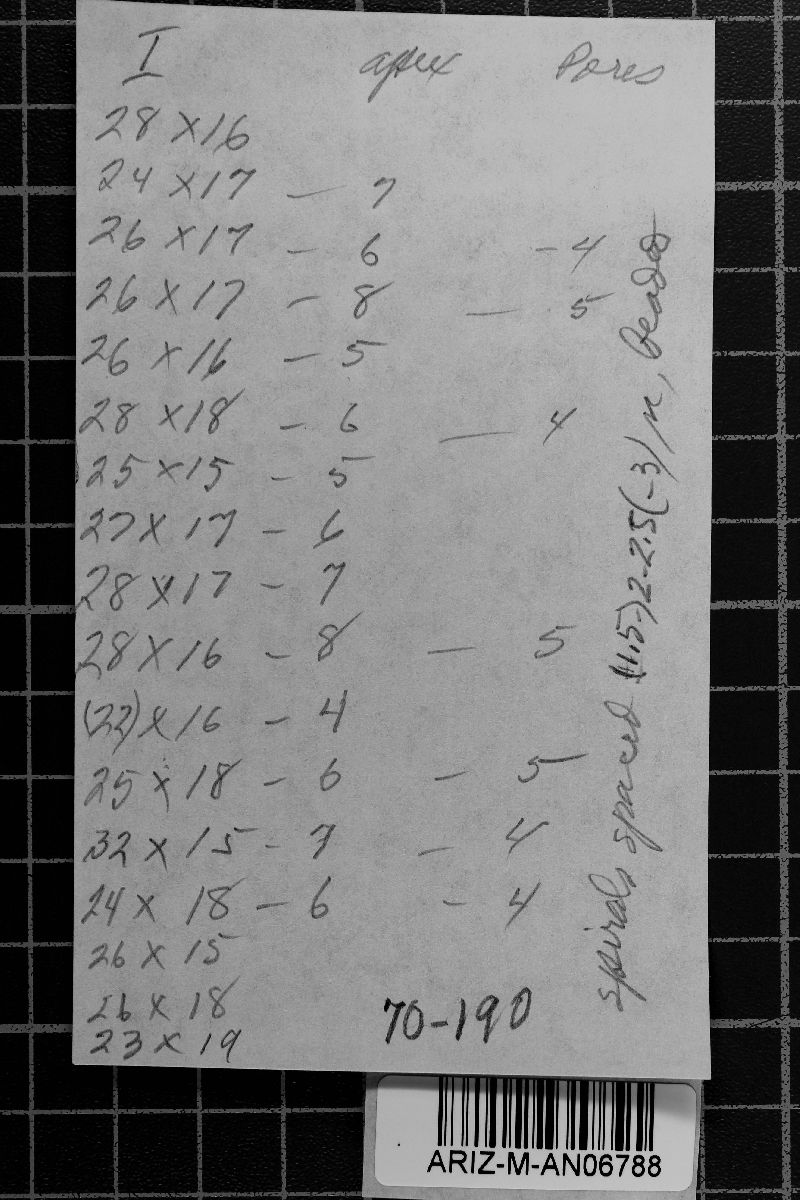 I apex Pores
28 × 16
24 × 17 — 7
26 × 17 — 6 — 4
26 × 17 — 8 — 5
26 × 16 — 5
28 × 18 — 6 — 4
25 × 15 — 5
27 × 17 — 6
28 × 17 — 7
28 × 16 — 8 — 5
(22) × 16 — 4
25 × 18 — 6 — 5
32 × 15 — 7 — 4
24 × 18 — 6 — 4
26 × 15
26 × 18
23 × 19
70-190
spirals spaced (1.5-) 2-2.5 (-3) / beads
ARIZ-M-AN06788